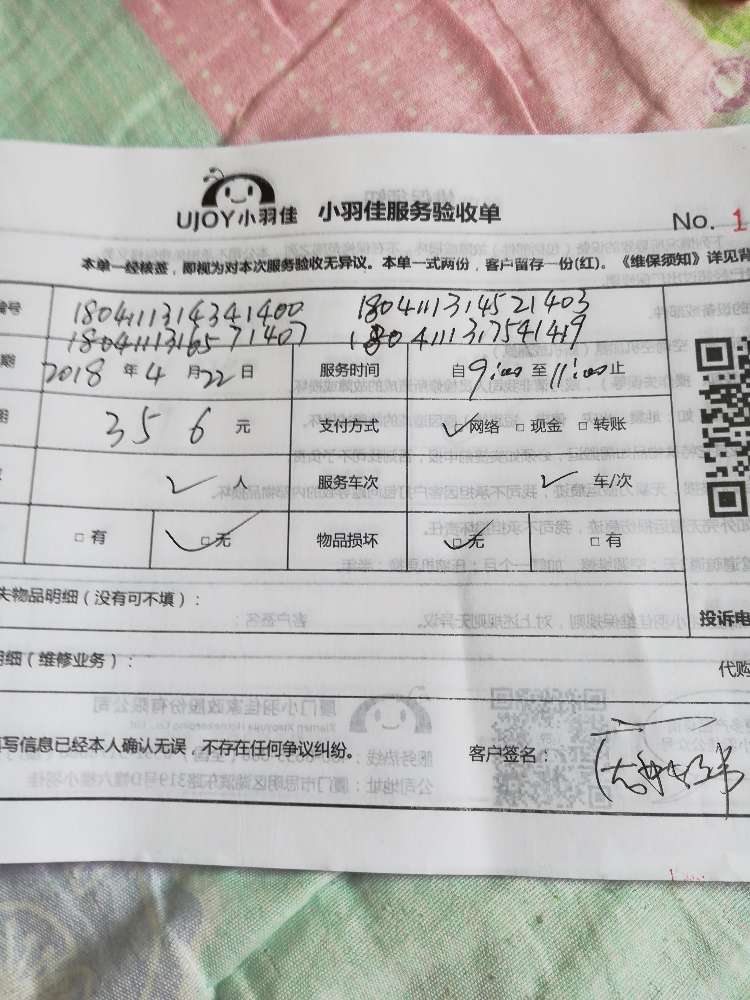 UJOY小羽佳 小羽佳服务验收单
No. 1
本单一经核签，即视为对本次服务验收无异议。本单一式两份，客户留存一份(红)。《维保须知》详见背
编号 1804111314341400 180411131452 1403
180411131657 1407 180411131754 1419
期 2018 年 4 月 22 日 服务时间 自 9:00 至 11:00 止
356 元 支付方式 ☑网络 □现金 □转账
✓ 人 服务车次 ✓ 车/次
□有 ☑无 物品损坏 ☑无 □有
失物品明细（没有可不填）：
投诉电
明细（维修业务）：
代购
填写信息已经本人确认无误，不存在任何争议纠纷。 客户签名：